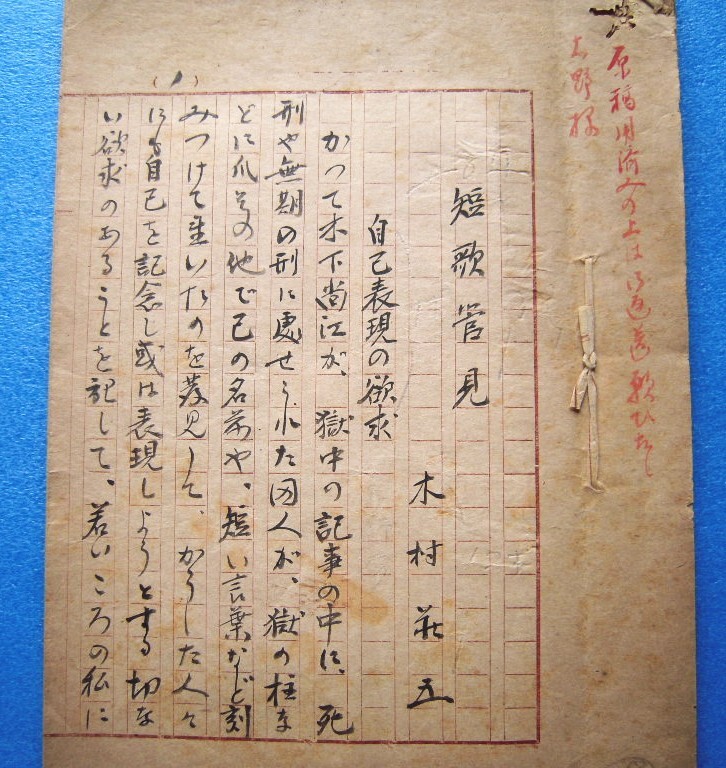 原稿用済みの上は御返送願ひたし
上野様
(1)
短歌管見
木村荘五
自己表現の欲求
かつて木下尚江が、獄中の記事の中に、死
刑や無期の刑に処せられた囚人が、獄の柱な
どに爪その他で己の名前や、短い言葉など刻
みつけて置いたのを発見して、かうした人々
にも自己を記念し或は表現しようとする切な
い欲求のあることを記して、若いころの私に